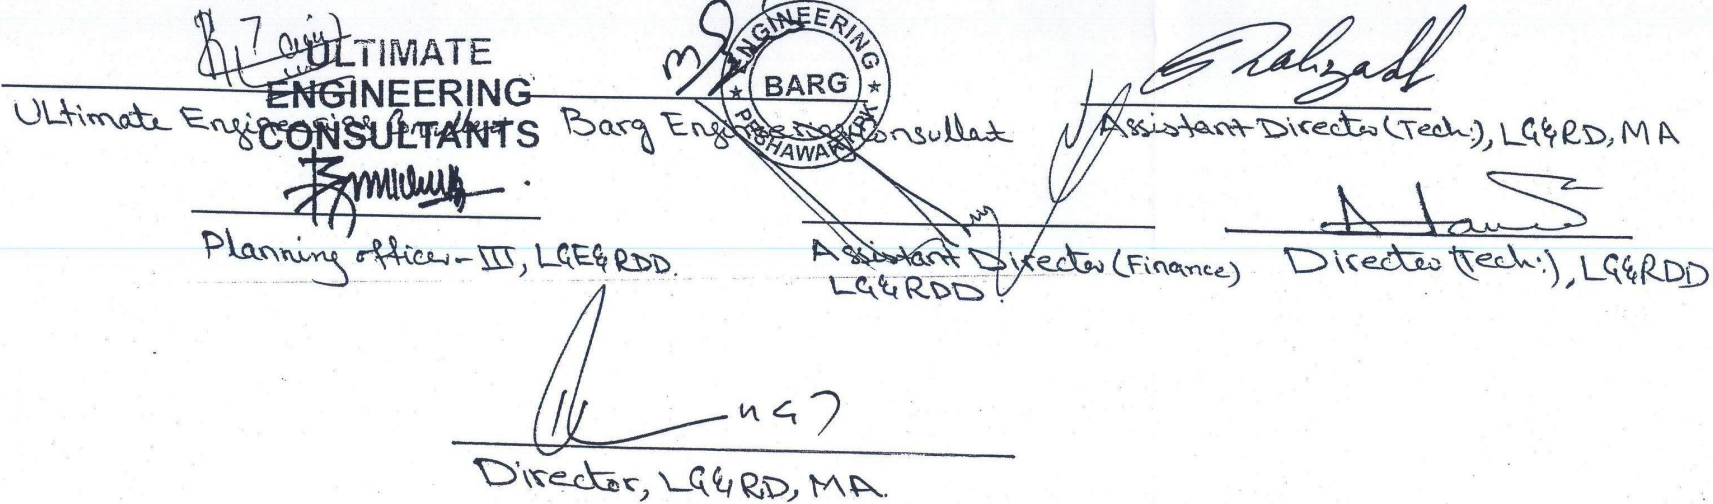 ULTIMATE
ENGINEERING
CONSULTANTS
Ultimate Engineering
ENGINEERING
BARG
PESHAWAR
Barg Engineering Consullat
Assistant Director (Tech:), LG&RD, MA
Planning officer-III, LGE&RDD.
Assistant Director (Finance)
LG&RDD.
Director (Tech:), LG&RDD
Director, LG&RD, MA.